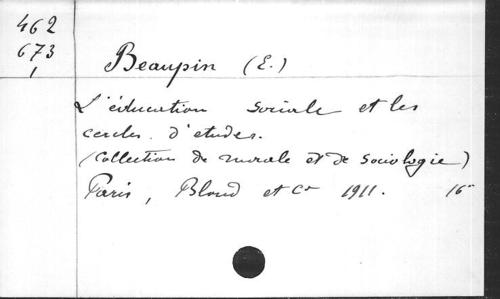 462
673
1
Beaupin (E.)
L'éducation sociale et les
cercles d'etudes.
(Collection de morale et de sociologie)
Paris, Bloud et Cie 1911. 16°